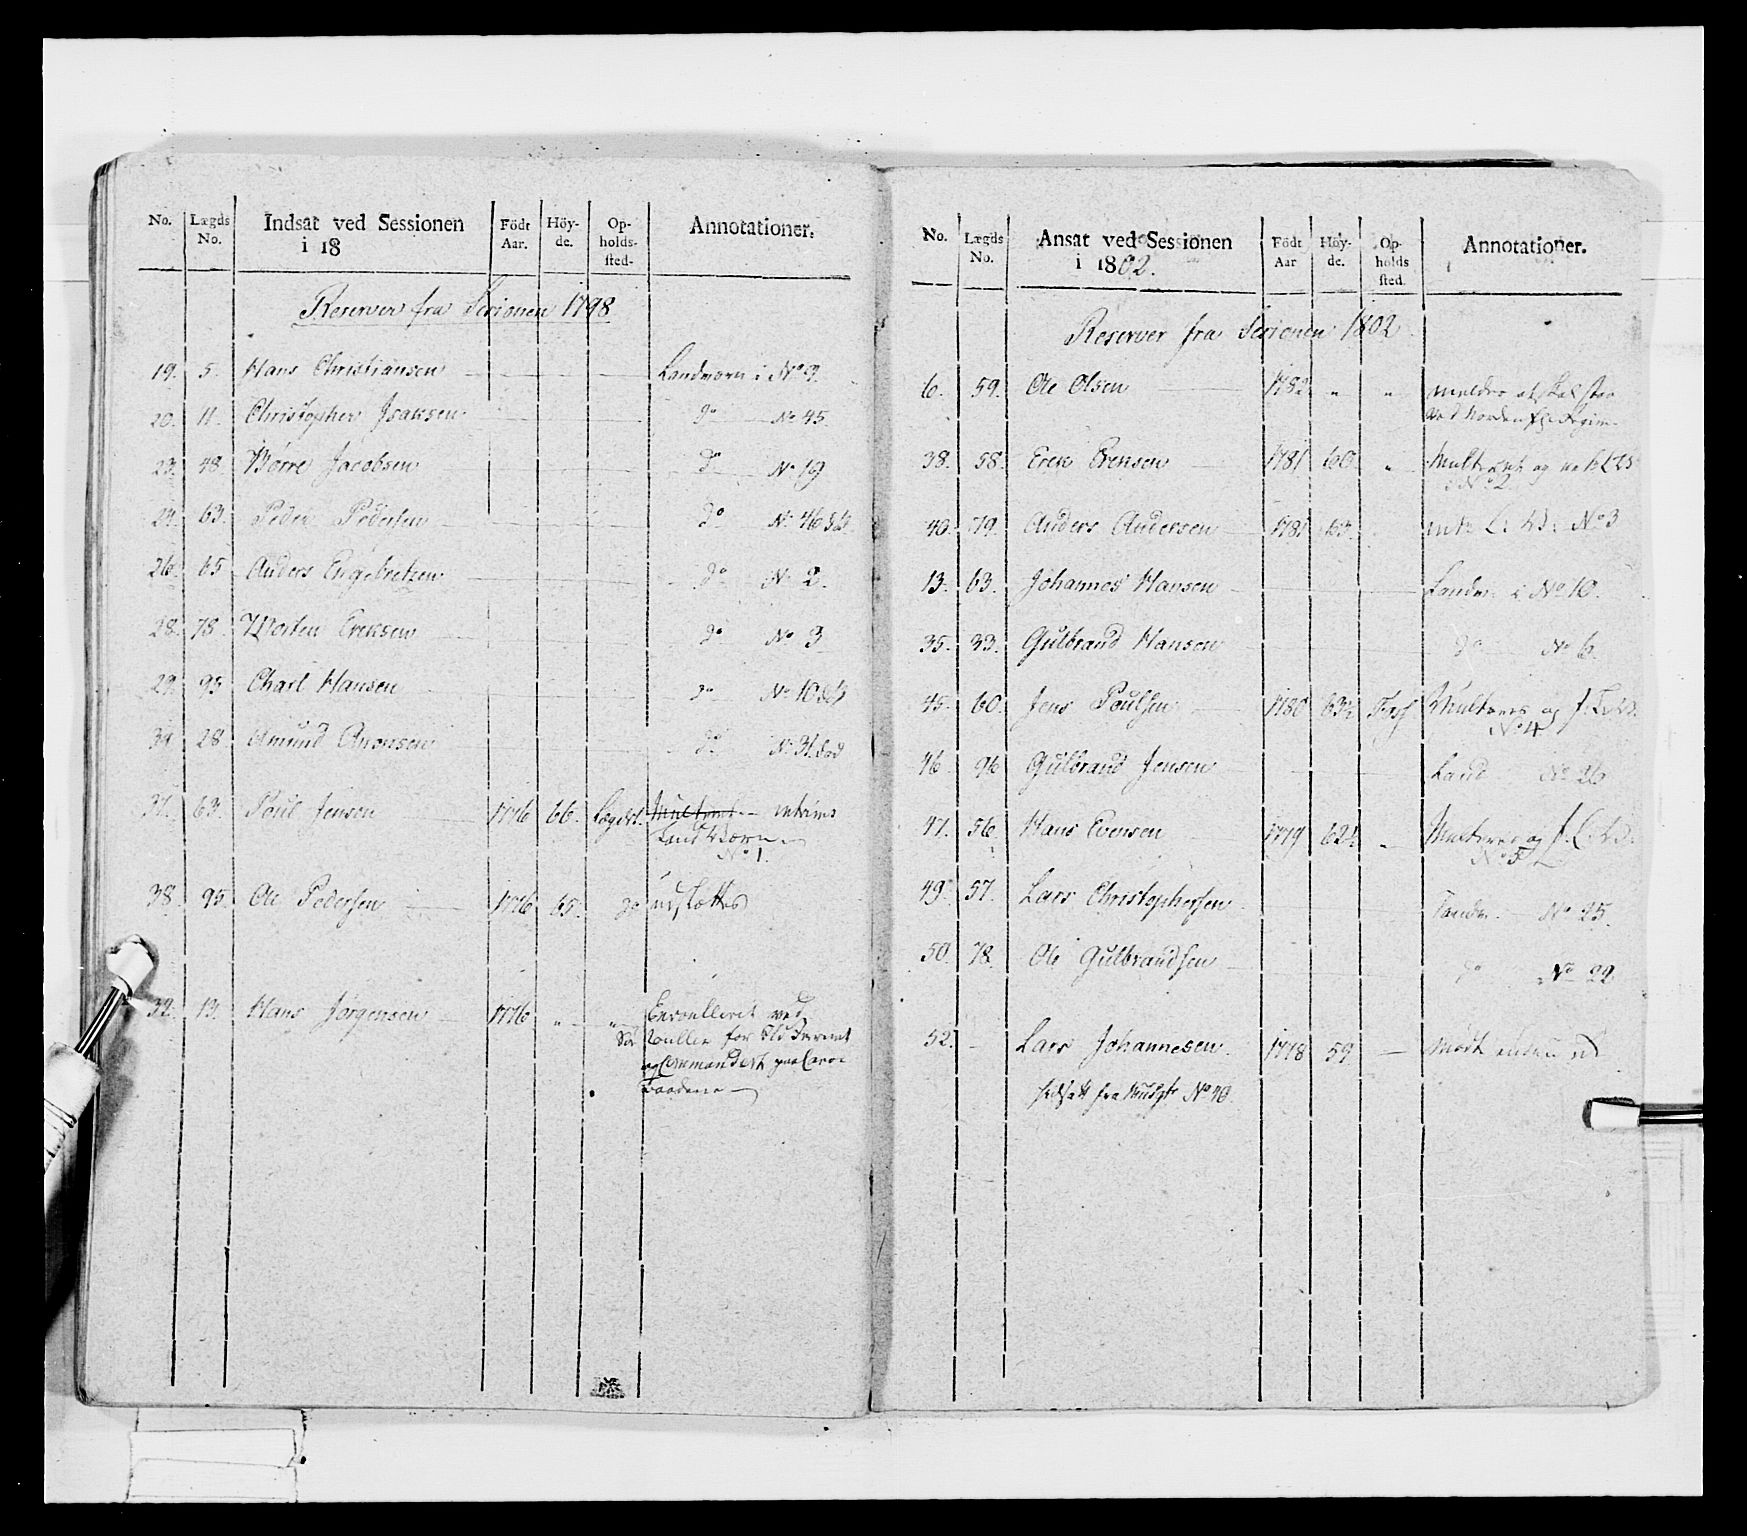 No. Lægds No. Indsat ved Sessionen i 18 Födt Aar. Höy-de. Op-holds-sted. Annotationer.
Reserver fra Sesionen 1798
19. 5. Hans Christiansen Landværn i No 9.
20. 11. Christopher Isaksen do No 45.
23. 48. Børre Jacobsen do No 19
24. 63. Peder Pedersen do No 46
26. 65 Anders Engebretsen do No 2
28. 78. Morten Eriksen do No 3
29. 95 Charl Hansen do No 10
34 28 Amund Aronsen do No 31. død
37. 63. Poul Jensen 1776 66. Lægdet. interims
Land Værn
No 1.
38. 95. Ole Pedersen 1776 65. do udsættes
32. 13. Hans Jørgensen 1776 " " Enroulleret ved
Søe Rullen for
og Commanderet paa
Baadene
No. Lægds No. Ansat ved Sessionen i 1802. Födt Aar Höy-de. Op-holds sted. Annotationer.
Reserver fra Sesionen 1802
6. 59. Ole Olsen 1782 " " meldes at skal staa
ved Nordenf. Regim.
38. 58. Erik Eriksen 1781 60. "
No 2
40. 79. Anders Andersen 1781 63. No 3
13. 63. Johannes Hansen Landv. i No 10.
35. 33. Gulbrand Hansen do No 6.
45. 60. Jens Poulsen 1780 63½ og
No 4
46. 96 Gulbrand Jensen Land No 26
47. 56. Hans Evensen 1779 62½ " og
No 5
49. 57. Lars Christophersen Landv. No 25.
50. 78. Ole Gulbrandsen do No 22
52. - Lars Johannesen. 1778 59 —
fra No 40.